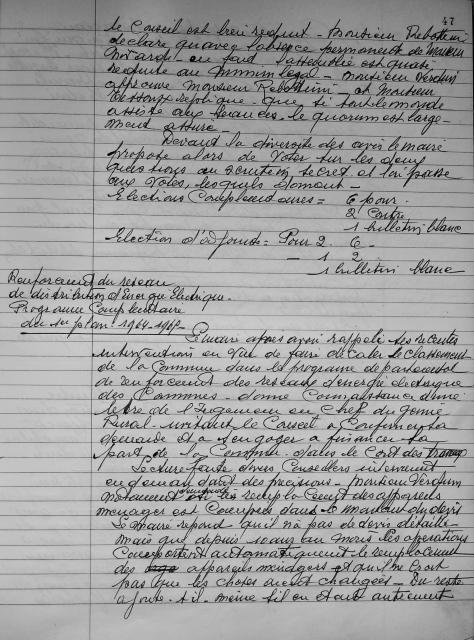 47
le Conseil est bien reduit - Monsieur Rebottini
déclare qu'avec l'absence permanente de
en fait l'assemblée est quasi
reduite au minimum legal - Monsieur Verdun
approuve Monsieur Rebottini - et Monsieur
replique que si tout le monde
assiste aux séances, le quorum est large-
ment assuré -
Devant la diversité des avis le maire
propose alors de voter sur les deux
questions au scrutin secret et l'on passe
aux votes, lesquels donnent -
Elections Complémentaires = 6 pour
2 Contre
1 bulletin blanc
Election d'adjoints = Pour 2. 6 -
- 1 2
1 bulletin blanc
Renforcement du reseau
de distribution d'Energie Electrique.
Programme Complementaire
du plan 1964-1965 -
Le maire après avoir rappelé ses recentes
interventions en vue de faire le classement
de la Commune dans le programe departemental
de renforcement des reseaux d'énergie electrique
des Communes - donne Connaissance d'une
lettre de l'Ingenieur en Chef du Genie
Rural - invitant le Conseil a Confirmer sa
demande et a s'engager a financer la
part de la Commune dans le Cout des travaux
Lecture faite divers Conseillers interviennent
en demandant des precisions - Monsieur Verdun
notamment demande si le remplacement des appareils
menager est Compris dans le montant du devis
Le Maire repond qu'il n'a pas de devis détaillé
mais que depuis 10 ans au moins les operations
Comportent automatiquement le remplacement
des appareils ménagers et qu'il ne croit
pas que les choses aient changées - Du reste
ajoute-t-il - même s'il en etait autrement